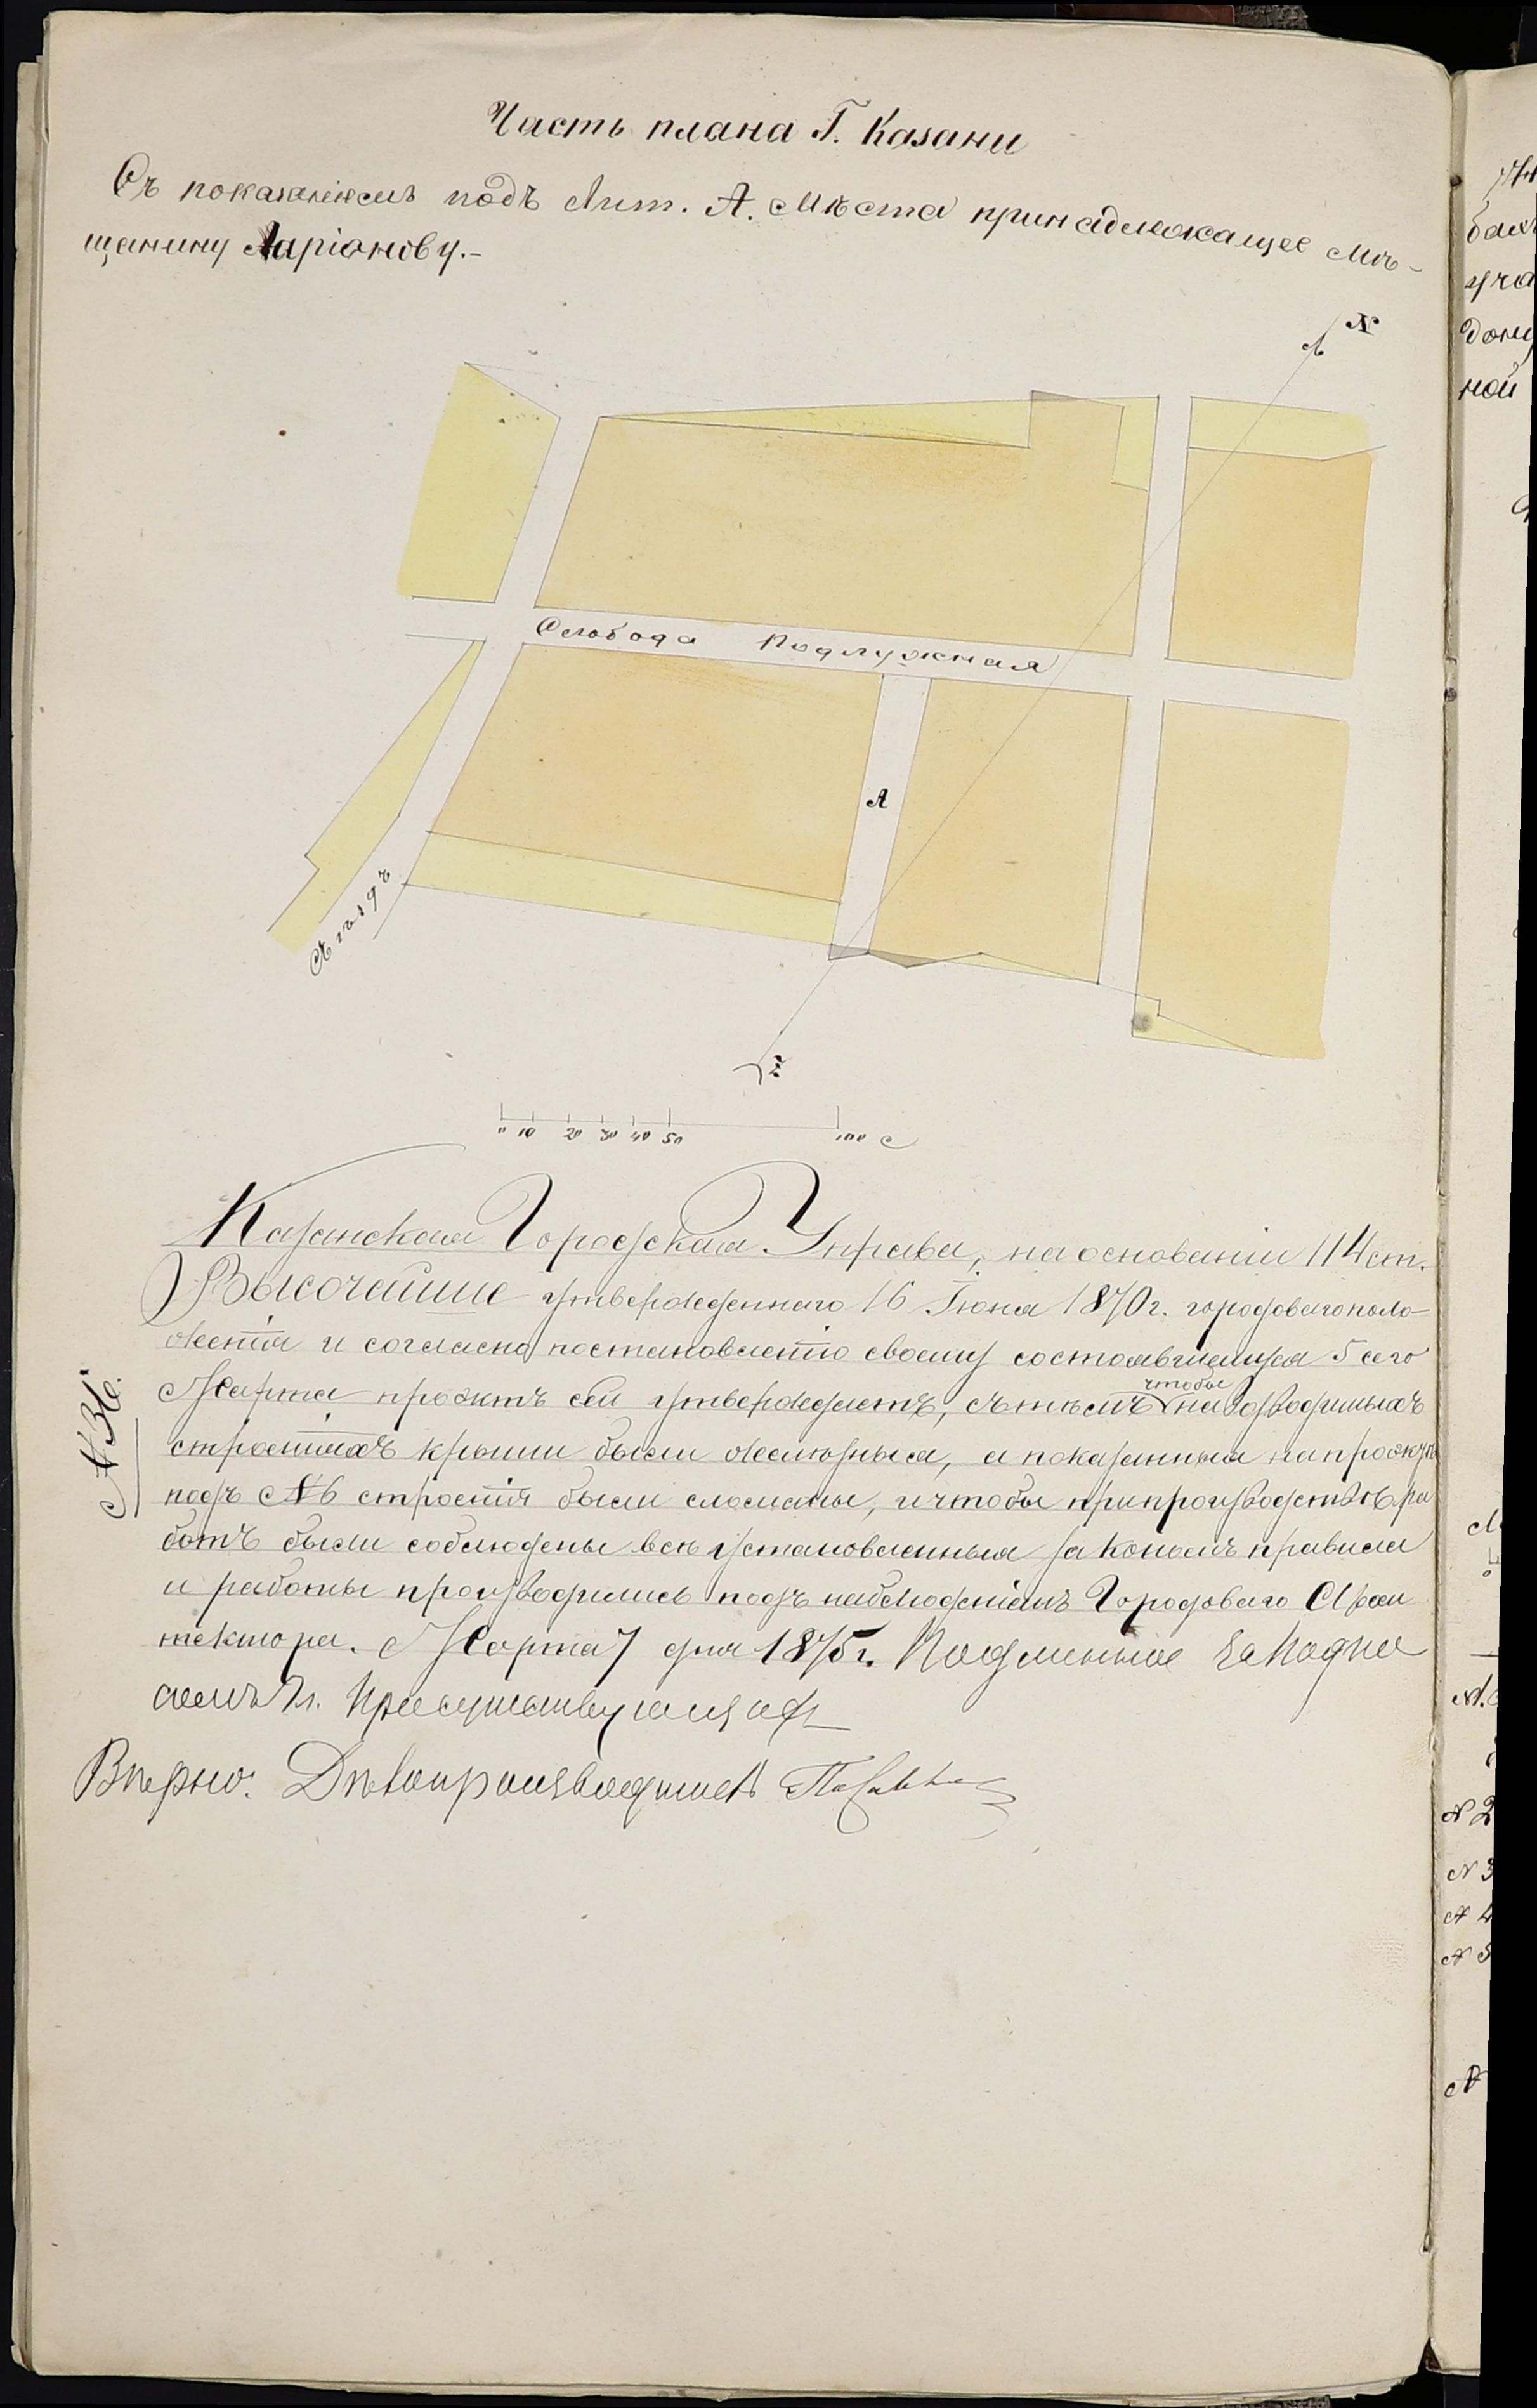 Часть плана Г. Казани
Съ показаніемъ подъ Лит. А. Мѣста принадлежащее Мѣ-
щанину Ларіонову.-
N
Слобода Подлужная
А
Съѣздъ
0 10 20 30 40 50 100 с
Казанская Городская Управа, на основаніи 114 ст.
Высочайше утвержденнаго 16 Іюня 1870 г. городоваго поло-
женія и согласно постановленію своему состоявшемуся 5 сего
Марта проэктъ сей утверждаетъ, съ тѣмъ чтобы на возводимыхъ
строеніяхъ крыши были желѣзныя, а показанныя на проэктѣ
подъ №6 строенія были сломаны, и чтобы при производствѣ ра
ботъ были соблюдены всѣ установленныя закономъ правила
и работы производились подъ наблюденіемъ Городоваго Архи
тектора. Марта 7 дня 1875 г. Подлинное за подпи
сомъ Гг. Присутствующихъ
Вѣрно: Дѣлопроизводитель
№36.
№ 2
№ 3
№ 4
№ 5